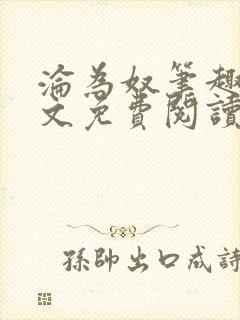 淪為奴筆趣
文免費閱讀
孫帥出口成詩